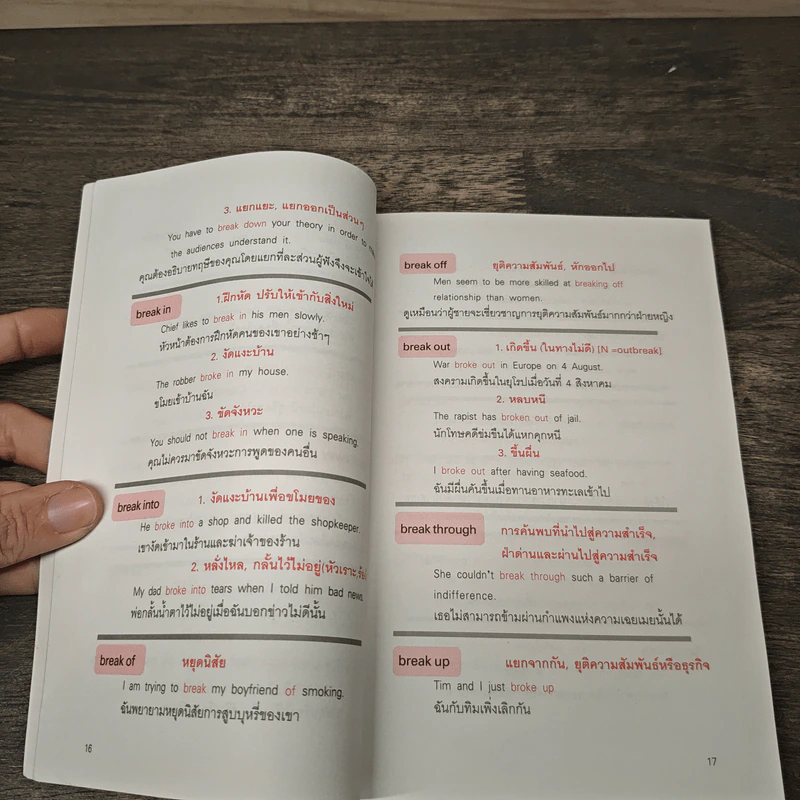 3. แยกแยะ, แยกออกเป็นส่วนๆ
You have to break down your theory in order to
the audiences understand it.
คุณต้องอธิบายทฤษฎีของคุณโดยแยกที่ละส่วนผู้ฟังจึงจะเข้าใจ
break in 1.ฝึกหัด ปรับให้เข้ากับสิ่งใหม่
Chief likes to break in his men slowly.
หัวหน้าต้องการฝึกหัดคนของเขาอย่างช้าๆ
2. งัดแงะบ้าน
The robber broke in my house.
ขโมยเข้าบ้านฉัน
3. ขัดจังหวะ
You should not break in when one is speaking.
คุณไม่ควรมาขัดจังหวะการพูดของคนอื่น
break into 1. งัดแงะบ้านเพื่อขโมยของ
He broke into a shop and killed the shopkeeper.
เขางัดเข้ามาในร้านและฆ่าเจ้าของร้าน
2. หลั่งไหล, กลั้นไว้ไม่อยู่(หัวเราะ,
My dad broke into tears when I told him bad news.
พ่อกลั้นน้ำตาไว้ไม่อยู่เมื่อฉันบอกข่าวไม่ดีนั้น
break of หยุดนิสัย
I am trying to break my boyfriend of smoking.
ฉันพยายามหยุดนิสัยการสูบบุหรี่ของเขา
16
break off ยุติความสัมพันธ์, หักออกไป
Men seem to be more skilled at breaking off
relationship than women.
ดูเหมือนว่าผู้ชายจะเชี่ยวชาญการยุติความสัมพันธ์มากกว่าฝ่ายหญิง
break out 1. เกิดขึ้น (ในทางไม่ดี) [N =outbreak]
War broke out in Europe on 4 August.
สงครามเกิดขึ้นในยุโรปเมื่อวันที่ 4 สิงหาคม
2. หลบหนี
The rapist has broken out of jail.
นักโทษคดีข่มขืนได้แหกคุกหนี
3. ขึ้นผื่น
I broke out after having seafood.
ฉันมีผื่นคันขึ้นเมื่อทานอาหารทะเลเข้าไป
break through การค้นพบที่นำไปสู่ความสำเร็จ,
ฝ่าด่านและผ่านไปสู่ความสำเร็จ
She couldn't break through such a barrier of
indifference.
เธอไม่สามารถข้ามผ่านกำแพงแห่งความเฉยเมยนั้นได้
break up แยกจากกัน, ยุติความสัมพันธ์หรือธุรกิจ
Tim and I just broke up
ฉันกับทิมเพิ่งเลิกกัน
17